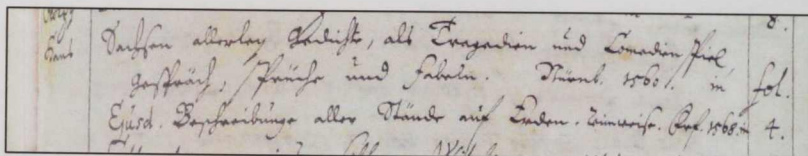 8.
Hans Sachsen allerley Gedichte, als Tragedien und Comedien Spiel,
Gespräch, Sprüche und Fabeln. Nürnb. 1560. in fol.
Ejusd. Beschreibunge aller Stände auf Erden. Reimweise. Frf. 1568. in 4.